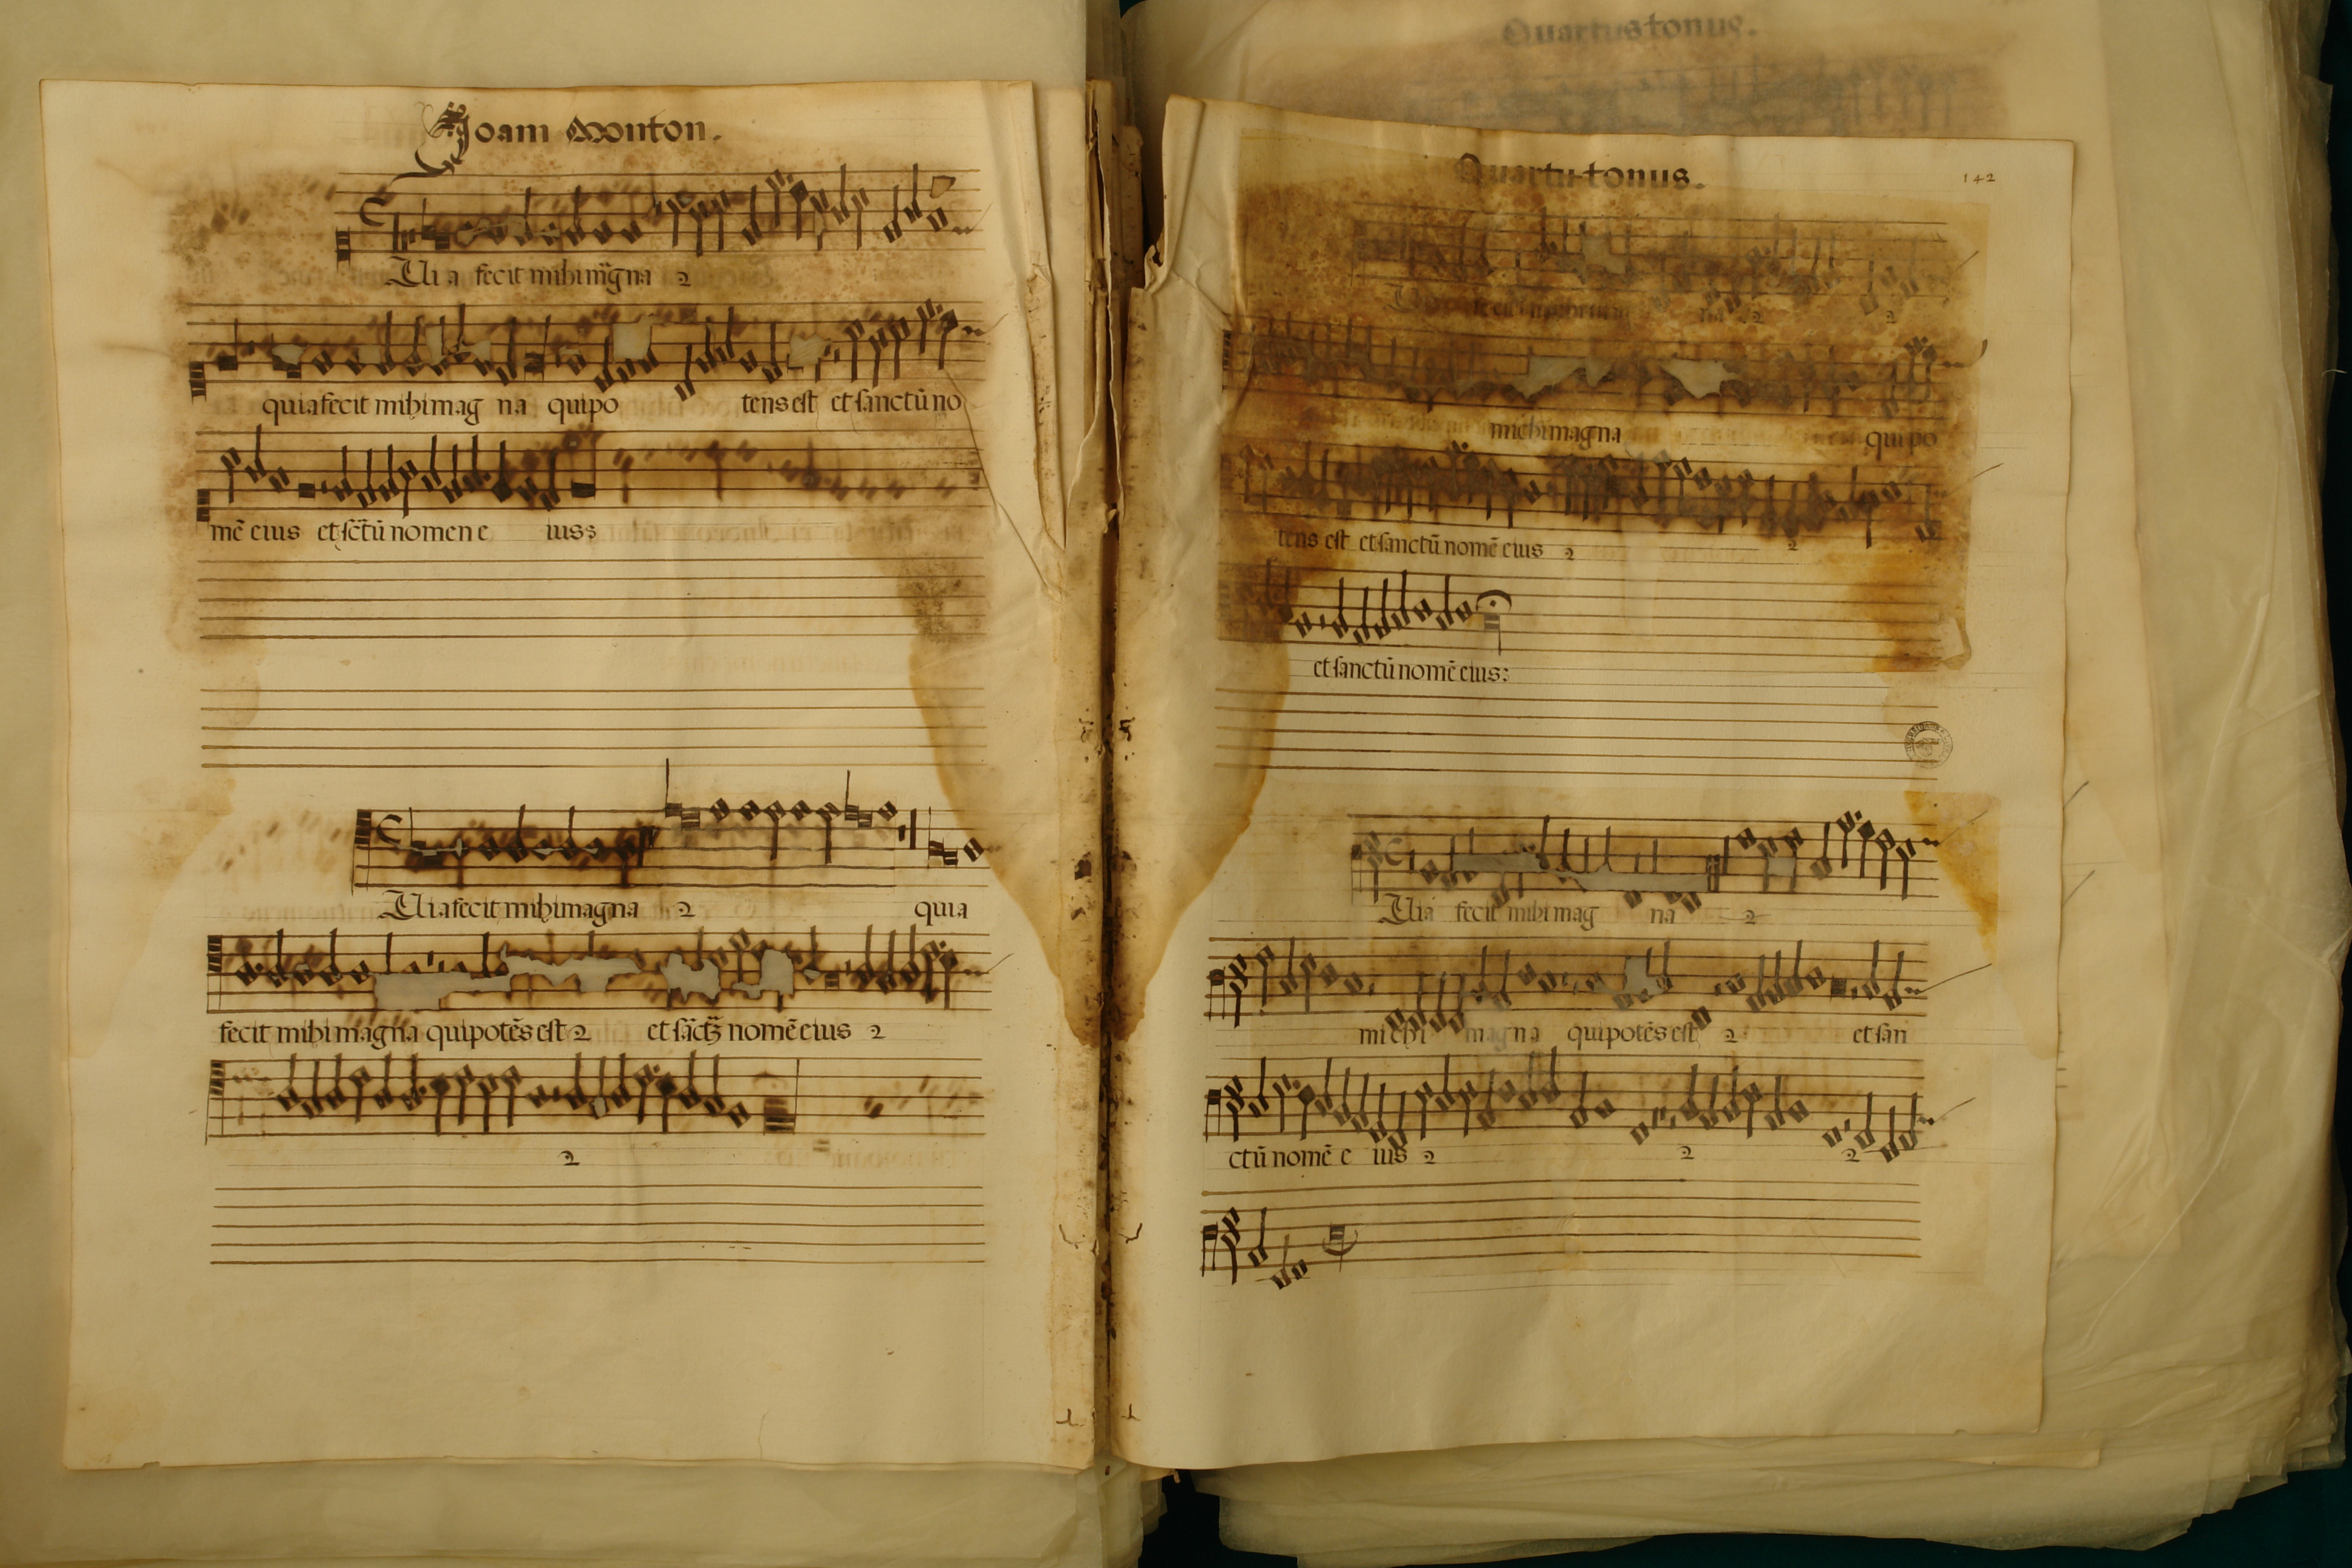 Joam Mouton.
Uia fecit mihi mãgna 2
quia fecit mihi mag na qui po tens est et sanctũ no
mẽ eius et sc̃tũ nomen e ius:
Uia fecit mihi magna 2 quia
fecit mihi magna qui potẽs est 2 et sãctũ nomẽ eius 2
2
Quartus tonus.
Quartu tonus.
142
na 2 2
michi magna qui po
tens est et sanctũ nomẽ eius 2 2
et sanctũ nomẽ eius:
Uia fecit mihi mag na 2
michi magna qui potẽs est 2 et san
ctũ nomẽ e ius 2 2 2